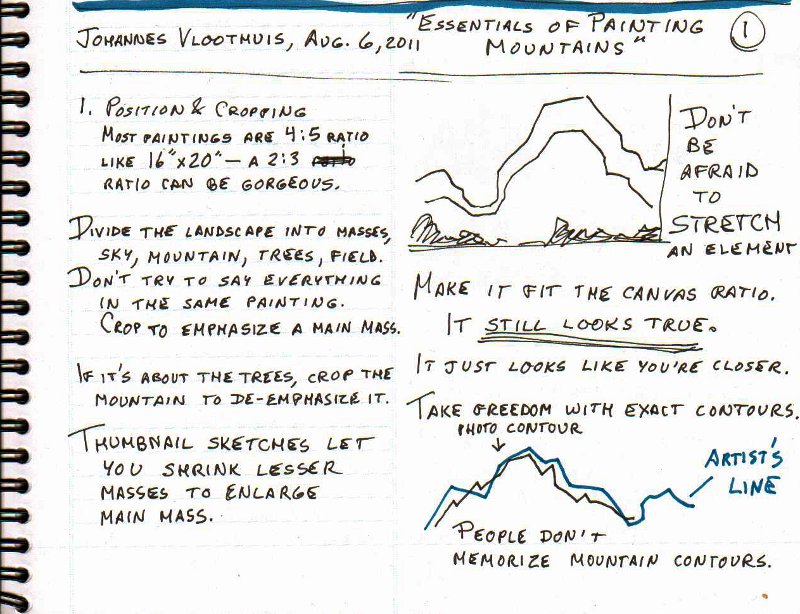 Johannes Vloothuis, Aug. 6, 2011
"Essentials of Painting
Mountains"
1
1. Position & Cropping
Most paintings are 4:5 ratio
like 16"x20" — a 2:3
ratio can be gorgeous.
Divide the landscape into masses,
sky, mountain, trees, field.
Don't try to say everything
in the same painting.
Crop to emphasize a main mass.
If it's about the trees, crop the
mountain to de-emphasize it.
Thumbnail sketches let
you shrink lesser
masses to enlarge
main mass.
Don't
be
afraid
to
stretch
an element
Make it fit the canvas ratio.
It still looks true.
It just looks like you're closer.
Take freedom with exact contours.
photo contour
Artist's
line
People don't
memorize mountain contours.